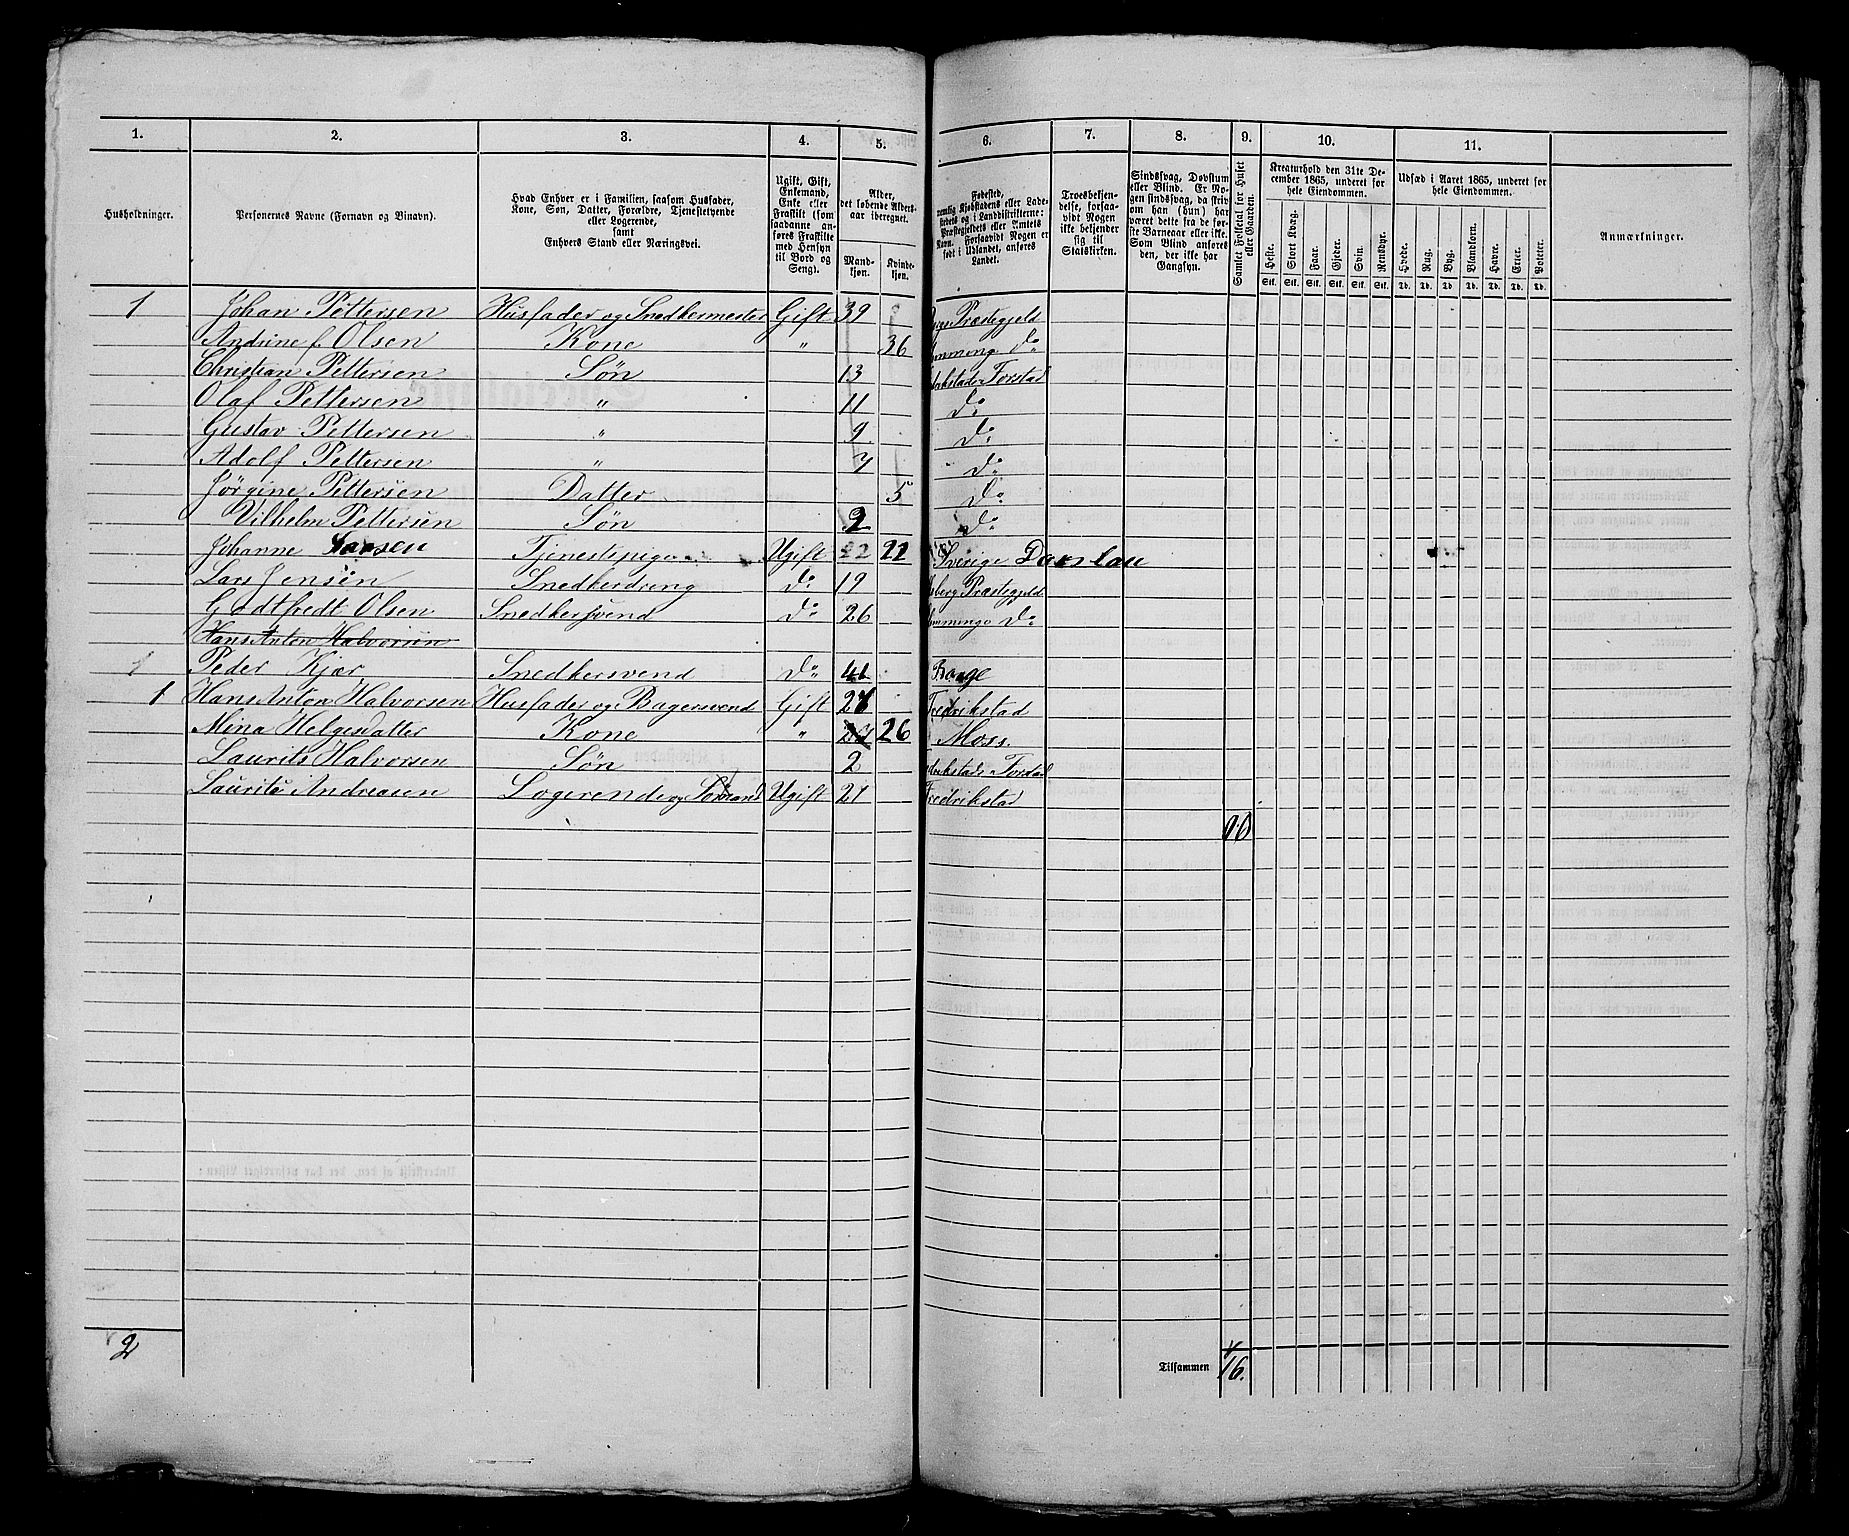 1. 2. 3. 4. 5. 6. 7. 8. 9. 10. 11.
Husholdninger.
Personernes Navne (Fornavn og Binavn).
Hvad Enhver er i Familien, saasom Husfader,
Kone, Søn, Datter, Forældre, Tjenestetyende
eller Logerende,
samt
Enhvers Stand eller Næringsvei.
Ugift, Gift,
Enkemand,
Enke eller
Fraskilt (som
saadanne an-
føres Fraskilte
med Hensyn
til Bord og
Seng).
Alder,
det løbende Alders-
aar iberegnet.
Mand-
kjøn.
Kvinde-
kjøn.
Fødested,
nemlig Kjøbstadens eller Lade-
stedets og i Landdistrikterne:
Præstegjeldets eller Amtets
Navn. Forsaavidt Nogen er
født i Udlandet, anføres
Landet.
Troesbekjen-
delse, forsaa-
vidt Nogen
ikke bekjender
sig til
Statskirken.
Sindssvag, Døvstum
eller Blind. Er No-
gen sindssvag, da skriv
om han (hun) har
været dette fra de før-
ste Barneaar eller ikke.
Som Blind anføres
den, der ikke har
Gangsyn.
Samlet Folketal for Huset
eller Gaarden.
Kreaturhold den 31te De-
cember 1865, underet for
hele Eiendommen.
Heste. Stort Kvæg. Faar. Gjeder. Svin. Rensdyr.
Stk. Stk. Stk. Stk. Stk. Stk.
Udsæd i Aaret 1865, underet for
hele Eiendommen.
Hvede. Rug. Byg. Blandkorn. Havre. Erter. Poteter.
Td. Td. Td. Td. Td. Td. Td.
Anmærkninger.
1 Johan Pettersen Husfader og Snedkermester Gift 39 Præstegjeld
Andrine f. Olsen Kone " 36 Do
Christian Pettersen Søn 13 Torstad
Olaf Pettersen " 11 Do
Gustav Pettersen " 9 Do
Adolf Pettersen " 7 Do
Jørgine Pettersen Datter 5 Do
Vilhelm Pettersen Søn 2 Do
Johanne Larsen Tjenestepige Ugift 22 22 Sverige
Lars Jensen Snedkerdreng Do 19 Præstegjeld
Godtfredt Olsen Snedkersvend Do 26 Do
Hans Anton Halvorsen
1 Peder Kjær Snedkersvend Do 41
1 Hans Anton Halvorsen Husfader og Bagersvend Gift 27 Fredrikstad
Mina Helgesdatter Kone " 26 Moss.
Laurits Halvorsen Søn 2 Torstad
Laurits Andreasen Logerende og Sømand Ugift 27 Fredrikstad
2 Tilsammen 16.